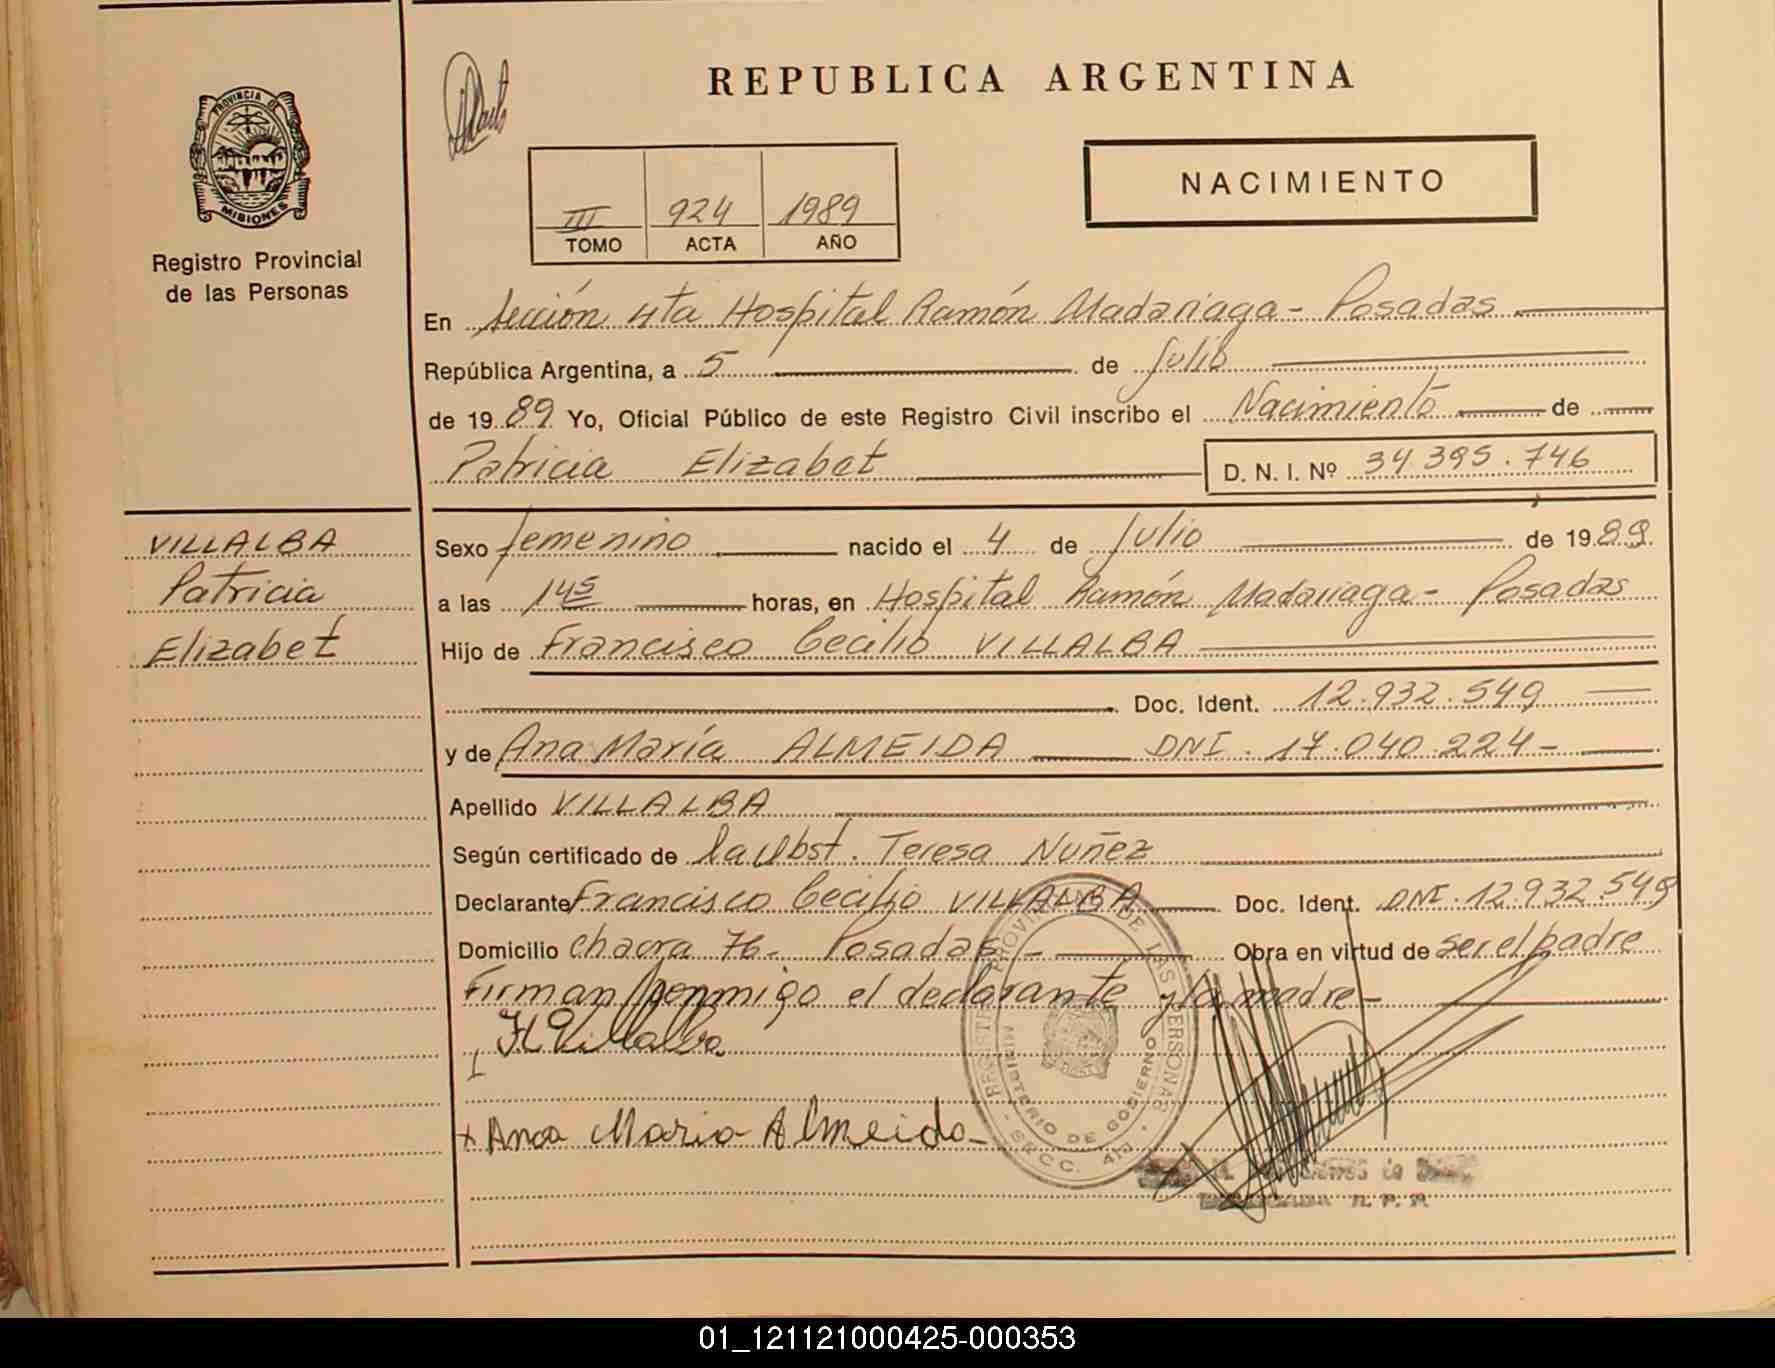 REPUBLICA ARGENTINA
PROVINCIA DE
MISIONES
Registro Provincial
de las Personas
NACIMIENTO
III 924 1989
TOMO ACTA AÑO
En Sección 4ta Hospital Ramón Madariaga - Posadas
República Argentina, a 5 de Julio
de 1989 Yo, Oficial Público de este Registro Civil inscribo el Nacimiento de
Patricia Elizabet D. N. I. Nº 34 395.746
VILLALBA
Patricia
Elizabet
Sexo femenino nacido el 4 de Julio de 1989
a las 1 45 horas, en Hospital Ramón Madariaga - Posadas
Hijo de Francisco Cecilio VILLALBA
Doc. Ident. 12.932.549
y de Ana María ALMEIDA DNI. 17.040.224-
Apellido VILLALBA
Según certificado de la Obst. Teresa Nuñez
Declarante Francisco Cecilio VILLALBA Doc. Ident. DNI. 12.932.549
Domicilio chacra 76- Posadas - Obra en virtud de ser el padre
Firman conmigo el declarante y la madre-
Villalba
+ Ana Maria Almeida-
REGISTRO PROVINCIAL DE LAS PERSONAS
MINISTERIO DE GOBIERNO
R. P. P.
01_121121000425-000353